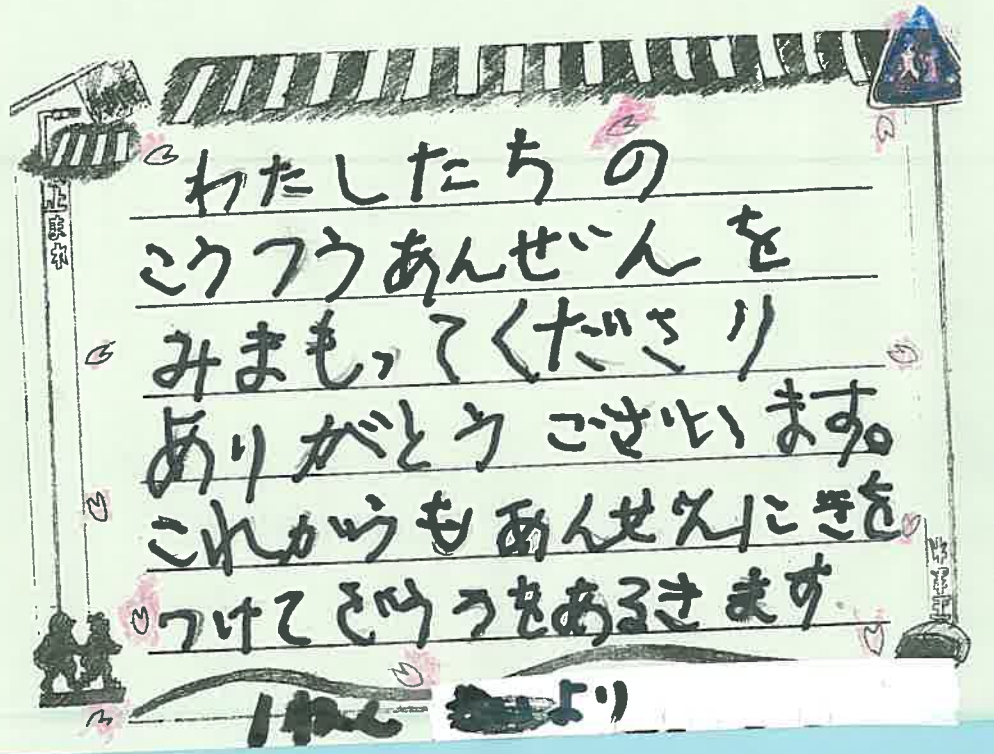 わたしたちの
こうつうあんぜんを
みまもってくださり
ありがとうございます。
これからもあんせんにきを
つけて どうろをあるきます
1ねん
より
止まれ